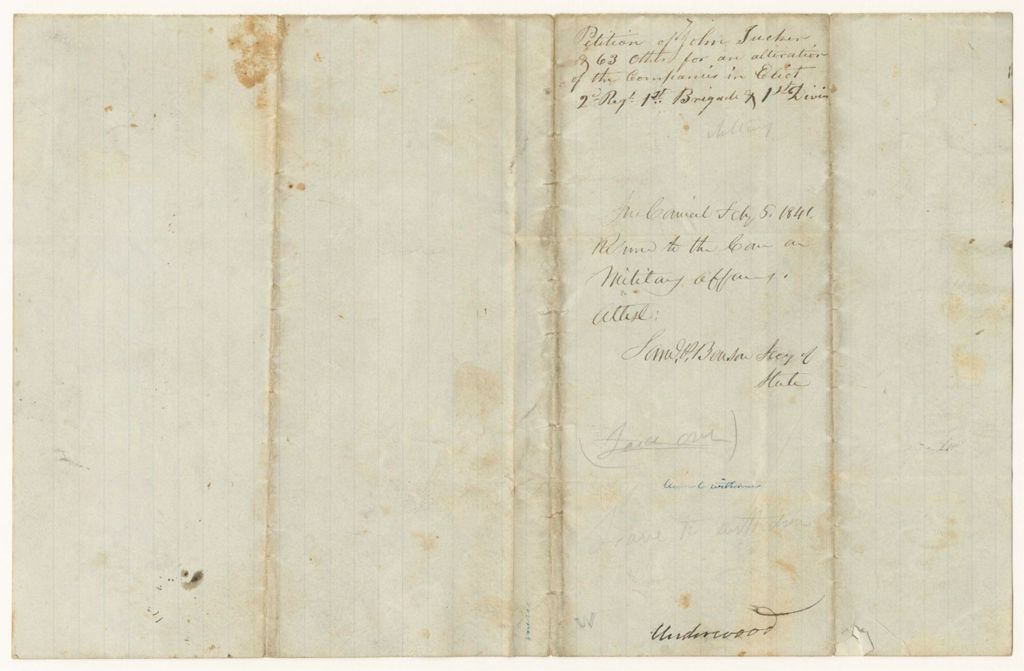 Petition of John Tucker
& 63 others for an alteration
of the Companies in Eliot
2d Regt. 1st. Brigade & 1st Divis
In Council Feby 5. 1841.
to the Com on
Military affairs.
Attest:
Saml. P. Benson Secy of
State
Leave to withdraw
Underwood